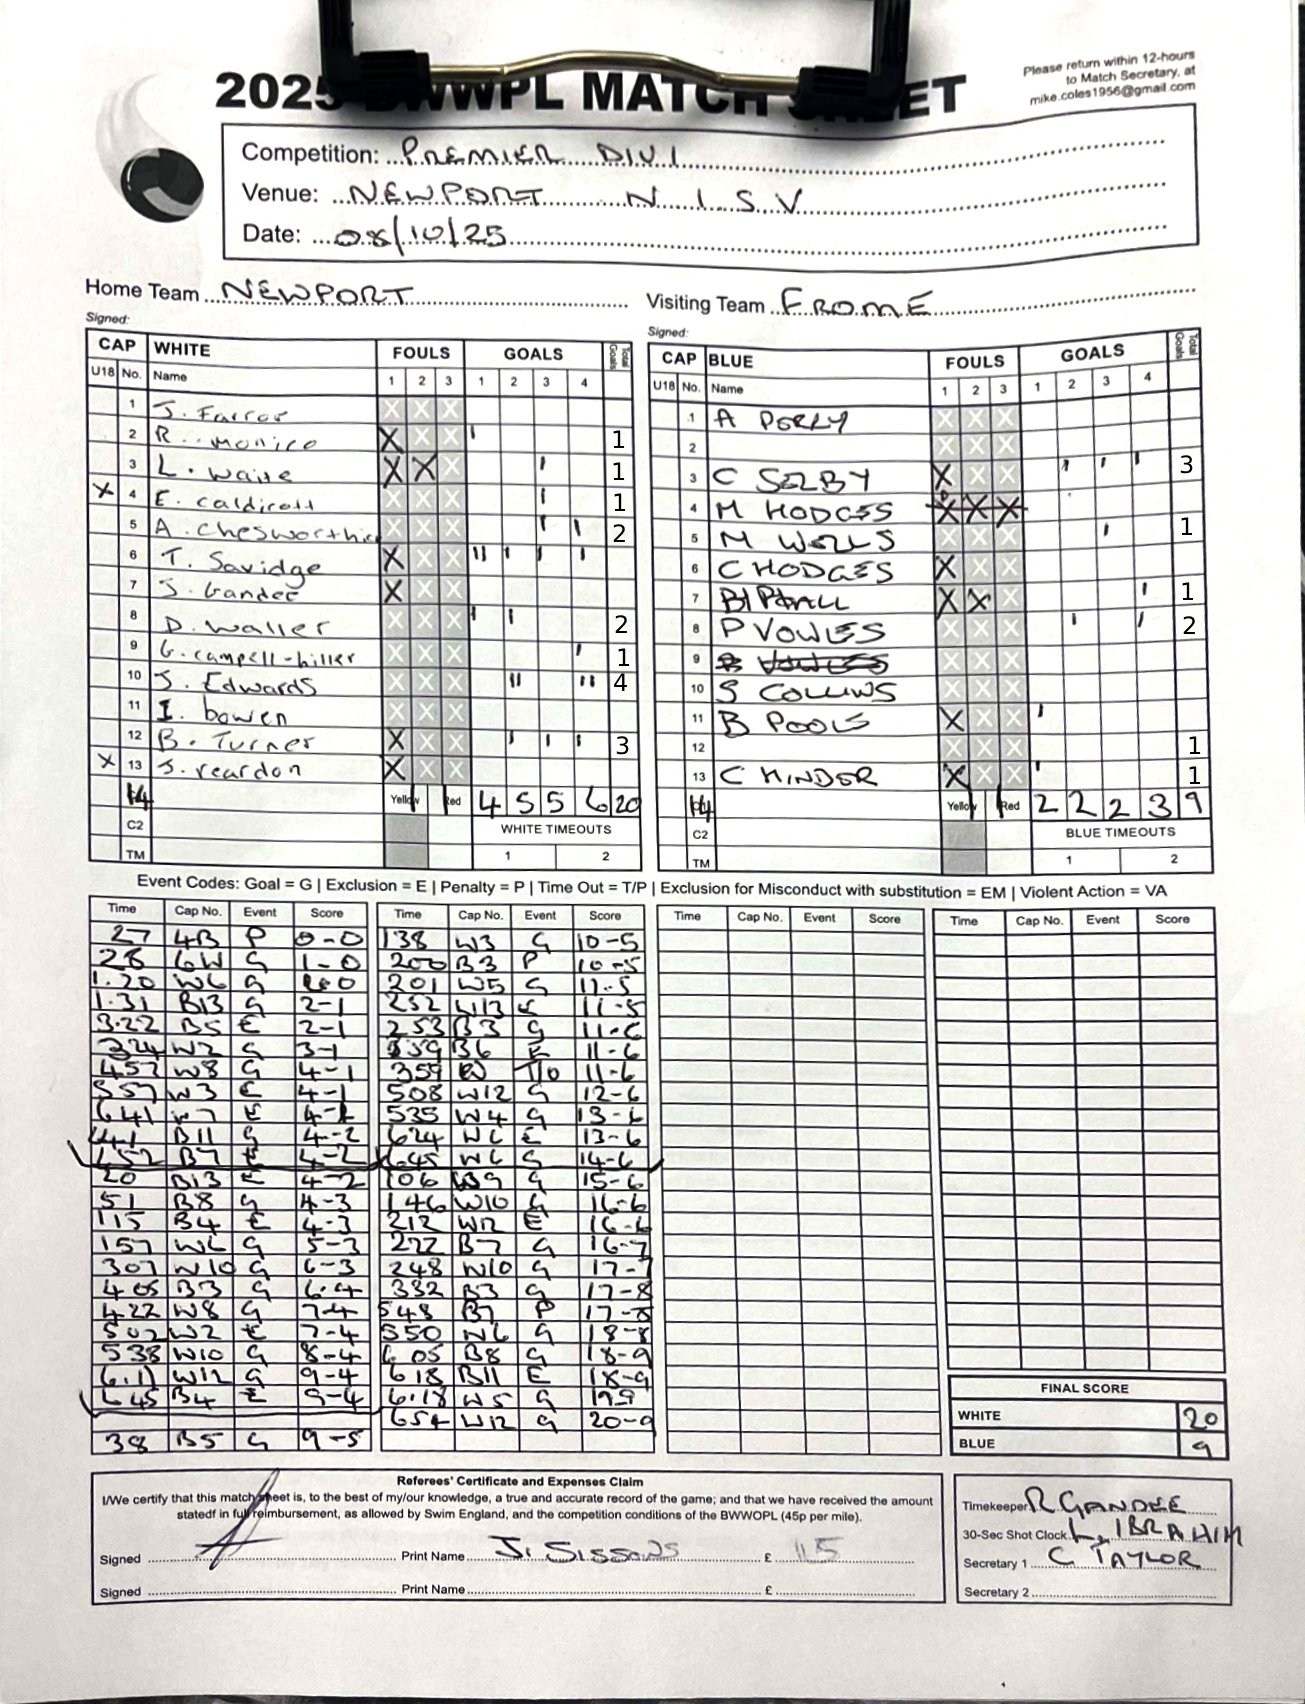 Please return within 12-hours
to Match Secretary, at
mike.coles1956@gmail.com
2025 BWWPL MATCH SHEET
Competition: PREMIER DIV 1
Venue: NEWPORT N I S V
Date: 08/10/25
Home Team NEWPORT
Visiting Team FROME
Signed:
Signed:
CAP WHITE FOULS GOALS Total Goals
U18 No. Name 1 2 3 1 2 3 4
1 J. Farror
2 R. monico X 1
3 L. waite X X 1
X 4 E. caldicott 1
5 A. Chesworth 2
6 T. Savidge X
7 J. Gandee X
8 D. waller 2
9 G. campell-hiller 1
10 J. Edwards 4
11 I. bowen
12 B. Turner X 3
X 13 J. reardon X
14 Yellow Red 4 5 5 6 20
C2 WHITE TIMEOUTS
TM 1 2
CAP BLUE FOULS GOALS Total Goals
U18 No. Name 1 2 3 1 2 3 4
1 A PERRY
2
3 C SELBY X 3
4 M HODGES X X X
5 M WELLS 1
6 C HODGES X
7 X X 1
8 P VOWLES 2
9
10 S COLLINS
11 B POOLE X
12 1
13 C HINDER X 1
14 Yellow Red 2 2 2 3 9
C2 BLUE TIMEOUTS
TM 1 2
Event Codes: Goal = G | Exclusion = E | Penalty = P | Time Out = T/P | Exclusion for Misconduct with substitution = EM | Violent Action = VA
Time Cap No. Event Score
27 4B P 0-0
28 6W G 1-0
1.20 W6 G 2-0
1.31 B13 G 2-1
3.22 B5 E 2-1
324 W2 G 3-1
457 W8 G 4-1
557 W3 E 4-1
641 W7 E 4-1
641 B11 G 4-2
652 B7 E 4-2
20 B13 E 4-2
51 B8 G 4-3
115 B4 E 4-3
157 W6 G 5-3
307 W10 G 6-3
405 B3 G 6-4
422 W8 G 7-4
502 W2 E 7-4
538 W10 G 8-4
6.11 W12 G 9-4
645 B4 E 9-4
38 B5 G 9-5
Time Cap No. Event Score
138 W3 G 10-5
200 B3 P 10-5
201 W5 G 11-5
252 W13 E 11-5
253 B3 G 11-6
359 B6 E 11-6
359 T/O 11-6
508 W12 G 12-6
535 W4 G 13-6
624 W6 E 13-6
645 W6 G 14-6
106 W9 G 15-6
146 W10 G 16-6
212 W12 E 16-6
222 B7 G 16-7
248 W10 G 17-7
332 B3 G 17-8
548 B7 P 17-8
550 W6 G 18-8
605 B8 G 18-9
618 B11 E 18-9
6.18 W5 G 19 9
654 W12 G 20-9
Time Cap No. Event Score
Time Cap No. Event Score
FINAL SCORE
WHITE 20
BLUE 9
Referees' Certificate and Expenses Claim
I/We certify that this match sheet is, to the best of my/our knowledge, a true and accurate record of the game; and that we have received the amount
statedf in full reimbursement, as allowed by Swim England, and the competition conditions of the BWWOPL (45p per mile).
Signed Print Name J. SISSONS £ 115
Signed Print Name £
Timekeeper R GANDEE
30-Sec Shot Clock L. IBRAHIM
Secretary 1 C TAYLOR
Secretary 2